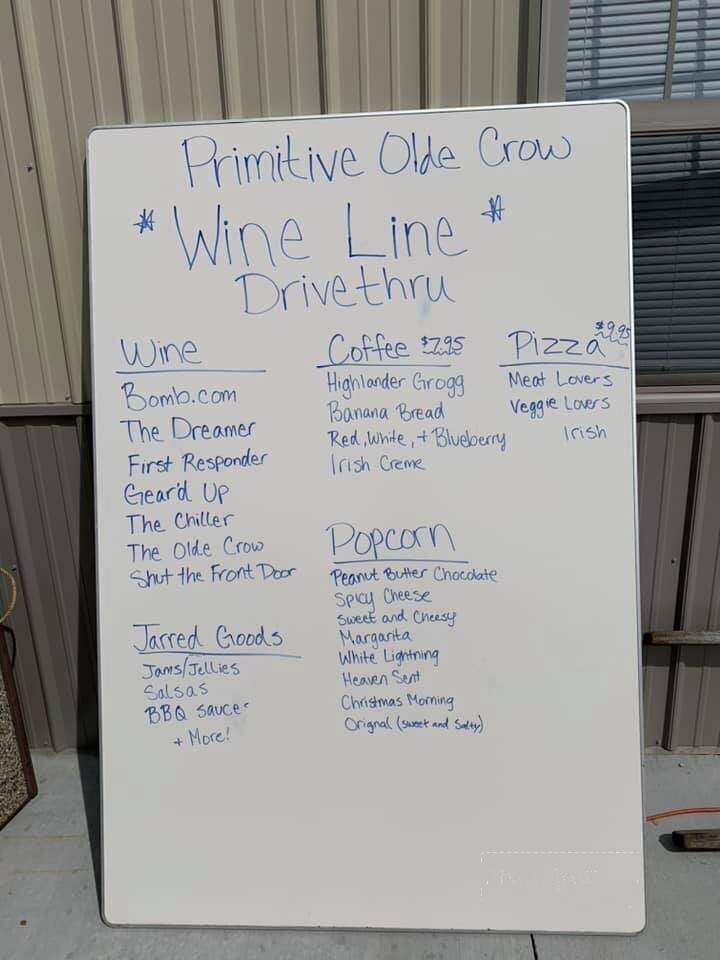 Primitive Olde Crow
* Wine Line *
Drivethru
Wine
Bomb.com
The Dreamer
First Responder
Gear'd Up
The Chiller
The Olde Crow
Shut the Front Door
Jarred Goods
Jams/Jellies
Salsas
BBQ Sauces
+ More!
Coffee $7.95
Highlander Grogg
Banana Bread
Red, White, + Blueberry
Irish Creme
Popcorn
Peanut Butter Chocolate
Spicy Cheese
Sweet and Cheesy
Margarita
White Lightning
Heaven Sent
Christmas Morning
Orignal (sweet and salty)
Pizza $9.95
Meat Lovers
Veggie Lovers
Irish